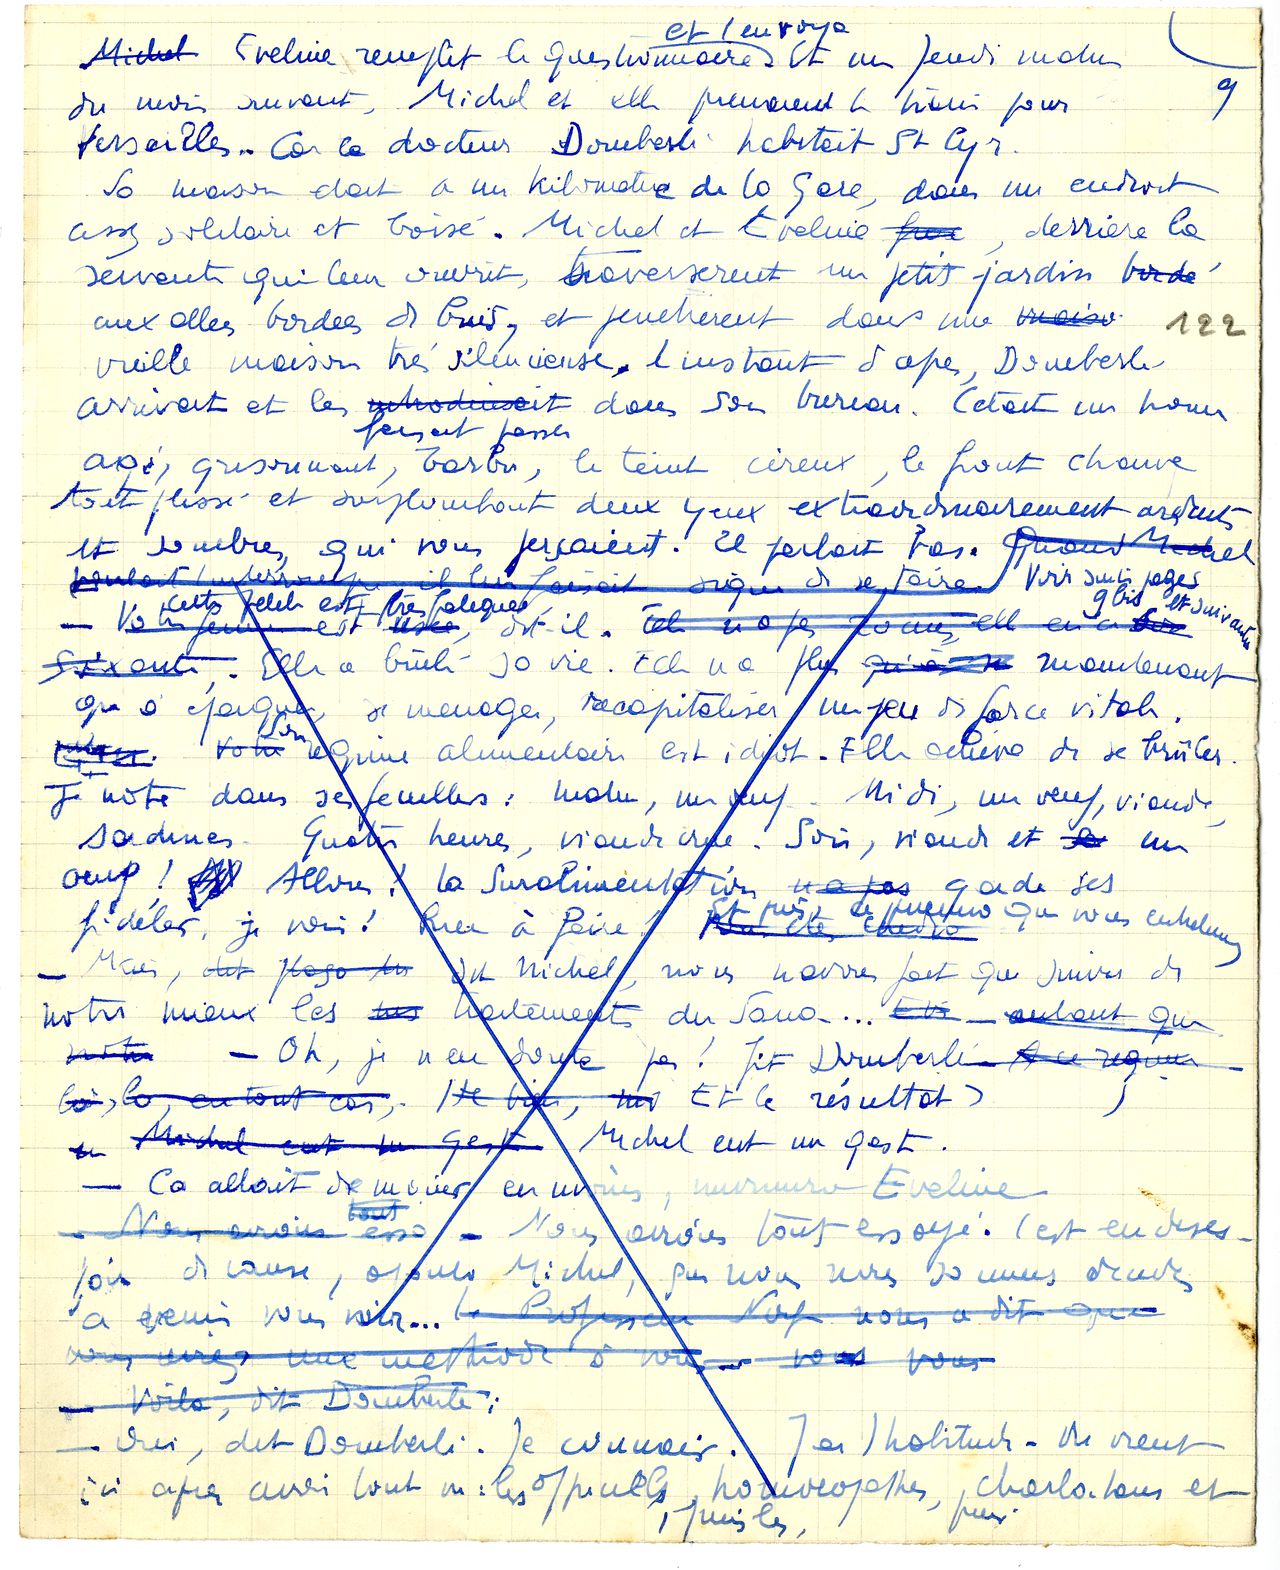 et l'envoya
Michel Eveline remplit le questionnaire. Et un jeudi matin
9
du mois suivant, Michel et elle prenaient le train pour
Versailles. Car le docteur Domberlé habitait St Cyr.
Sa maison était à un kilomètre de la gare, dans un endroit
assez solitaire et boisé. Michel et Eveline, derrière la
servante qui leur ouvrit, traversèrent un petit jardin bordé
aux allées bordées de buis, et pénétrèrent dans une maiso
122
vieille maison très silencieuse. L'instant d'après, Domberlé
arrivait et les introduisait dans son bureau. C'était un homme
faisait passer
agé, grisonnant, barbu, le teint cireux, le front chauve
tout plissé et surplombant deux yeux extraordinairement ardents
et sombres, qui vous perçaient. Il parlait bas. Quand Michel
voulait l'interrompre il lui faisait signe de se taire
Voir suite pages
9 bis et suivantes
cette petite est très fatiguée
— Votre femme est usée, dit-il. Elle n'a pas ans, elle en a
soixante. Elle a brûlé sa vie. Elle n'a plus qu'à se maintenant
qu'à s'épargner, se ménager, recapitaliser un peu de force vitale.
Son
Votre régime alimentaire est idiot. Elle achève de se brûler.
Je note dans ses feuilles : matin, un œuf. Midi, un œuf, viande,
sardines. Quatre heures, viande crue. Soir, viande et un
œuf ! Allons ! la suralimentation n'a pas garde ses
fidèles, je vois ! Rien à faire !
Et puis, ce pneumo que vous entretenez
— Mais, dit Michel, nous n'avons fait que suivre de
notre mieux les traitements du Sana... autant que
notre — Oh, je n'en doute pas ! fit Domberlé. A ce régime
là, là, en tout cas, Et le résultat ?
Michel eut un geste Michel eut un geste.
— Ca allait de moins en moins, murmura Eveline
tout
— Nous avons essa — Nous avons tout essayé. C'est en déses-
poir de cause, ajouta Michel, que nous nous sommes décidés
à venir vous voir... Le Professeur nous a dit que
vous aviez une méthode à vous, — vous
— Voilà, dit Domberlé :
— Oui, dit Domberlé. Je connais. J'ai l'habitude. On vient
ici après avoir tout vu : les officiels, homœopathes, charlatans et
, puis les, puis